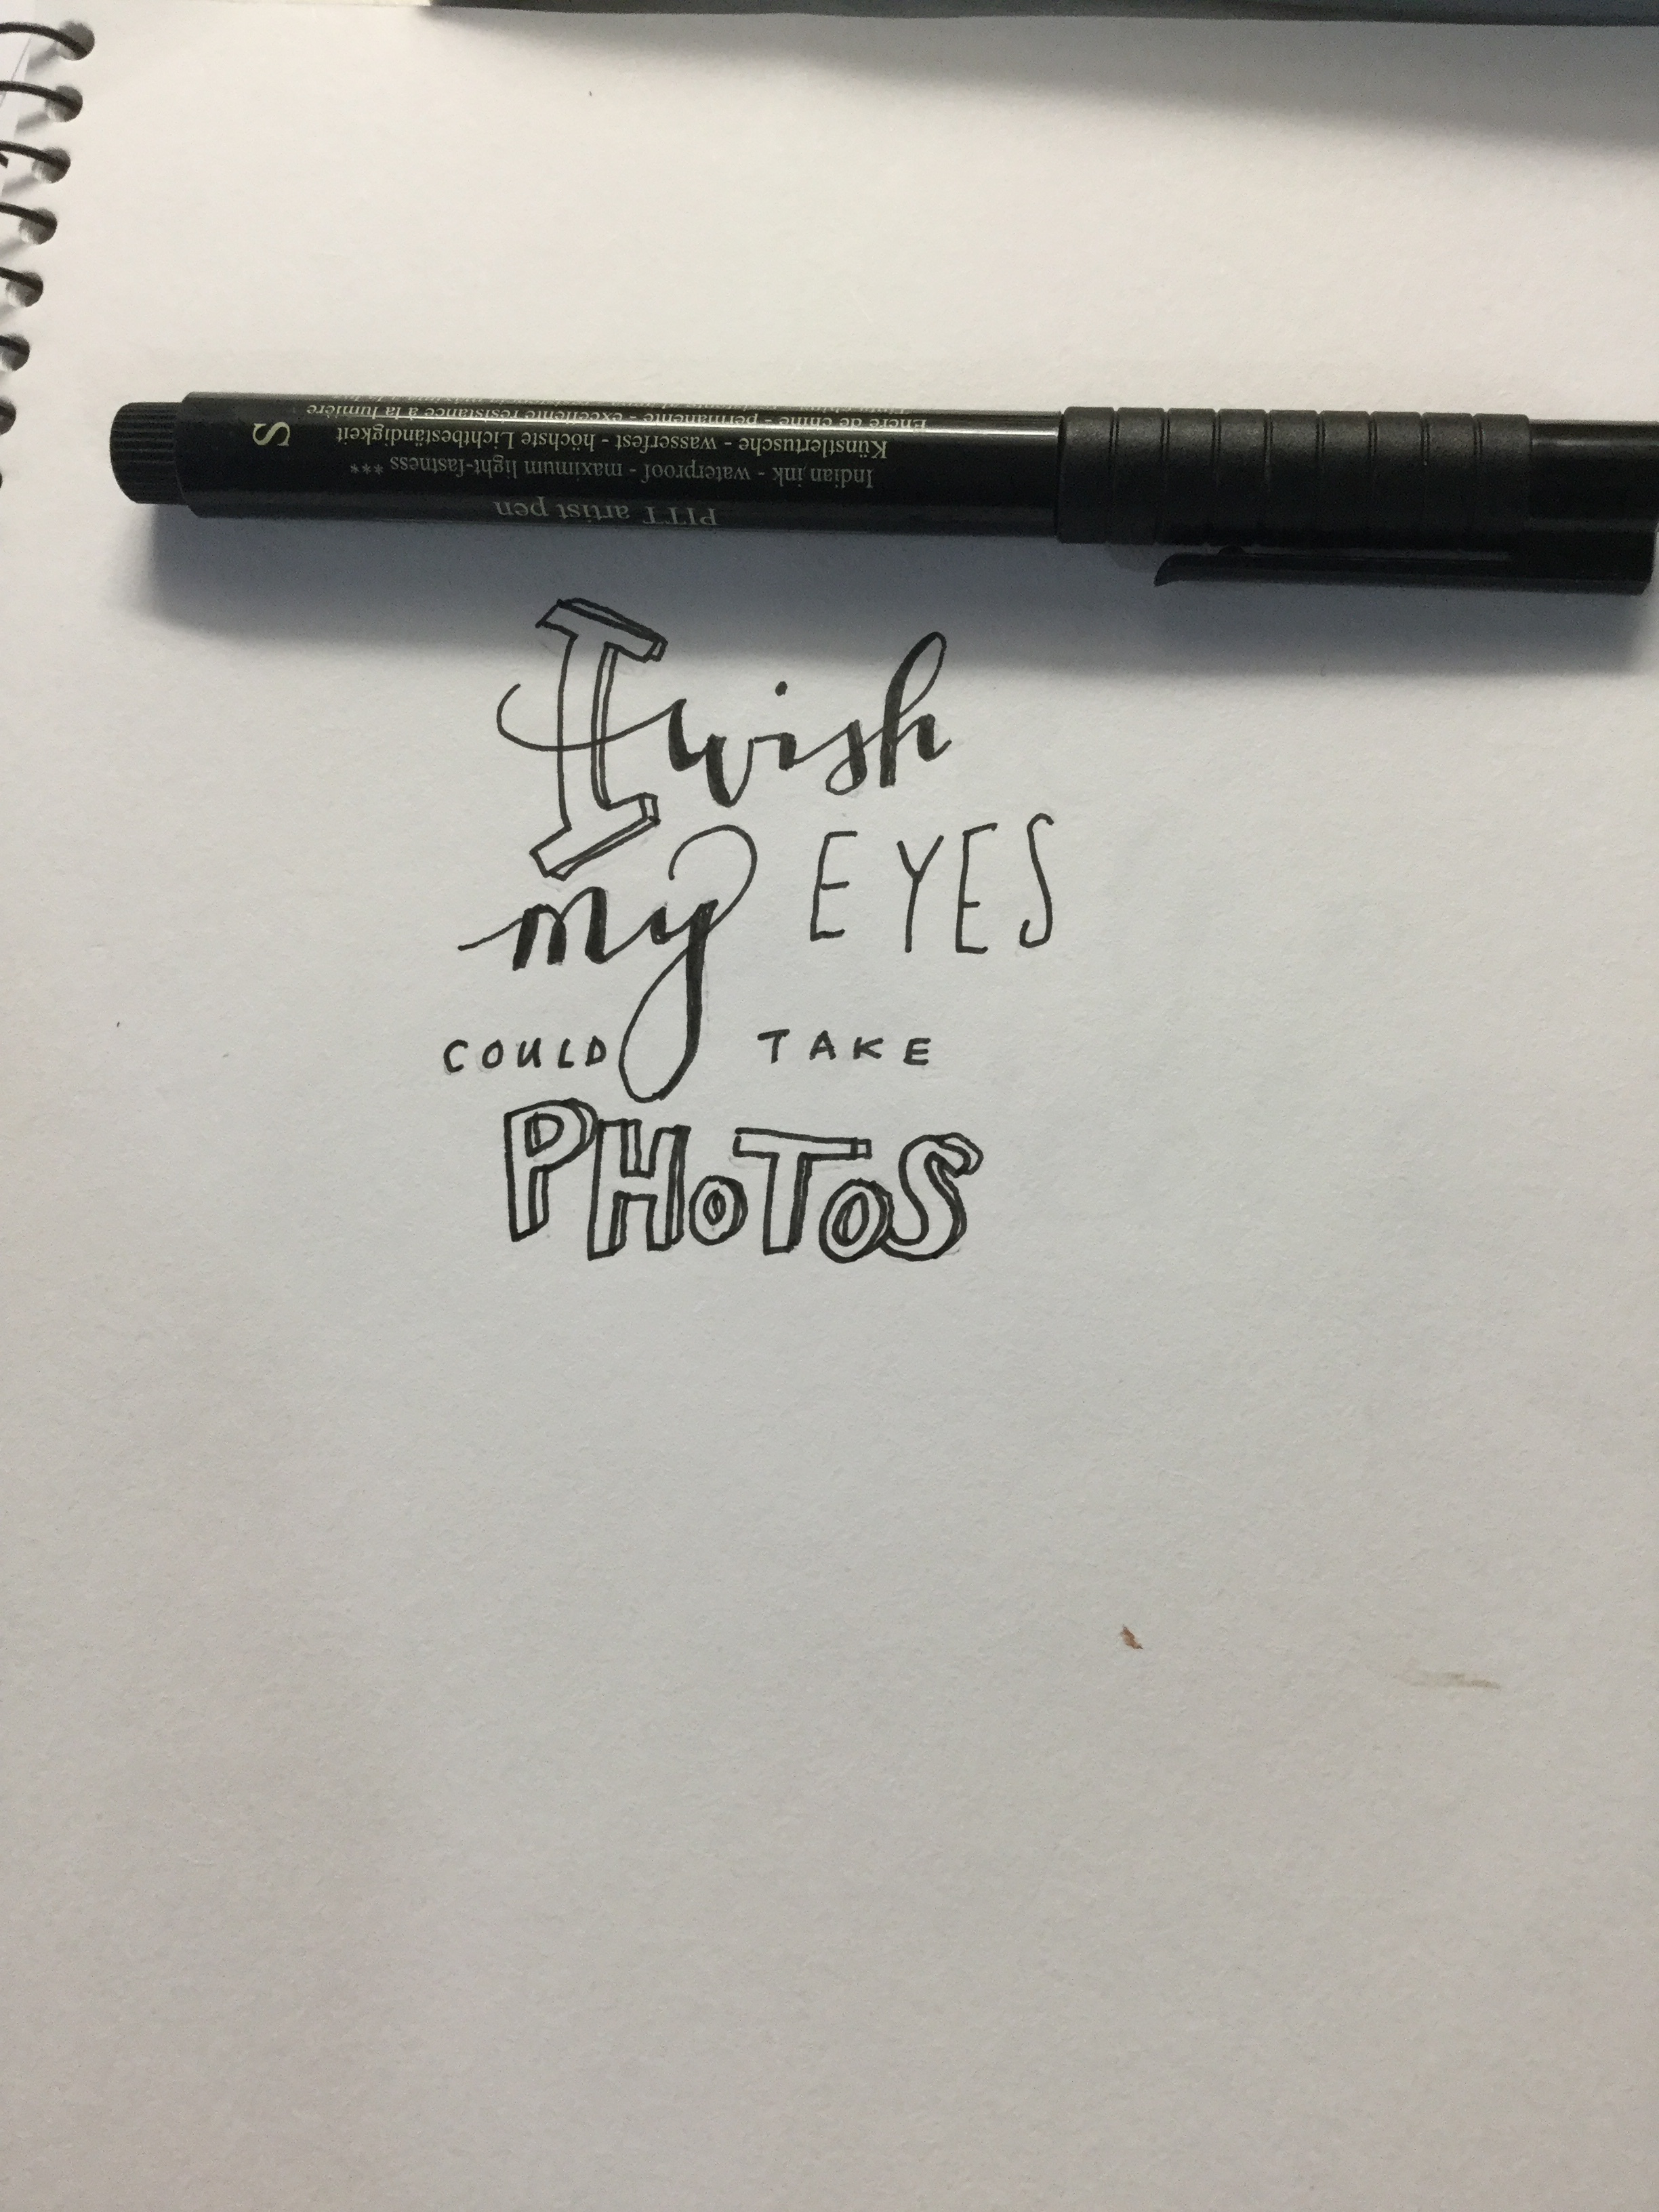 PITT artist pen
Indian ink - waterproof - maximum light-fastness ***
Künstlertusche - wasserfest - höchste Lichtbeständigkeit
Encre de chine - permanente - excellente résistance à la lumière
S
I wish
my EYES
COULD TAKE
PHOTOS